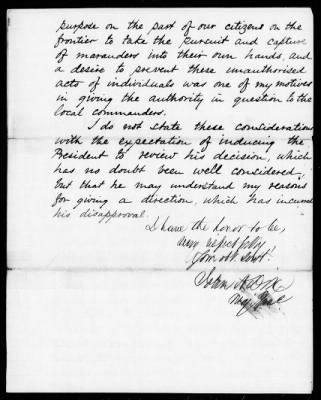 purpose on the part of our citizens on the
frontier to take the pursuit and capture
of marauders into their own hands, and
a desire to prevent these unauthorised
acts of individuals was one of my motives
in giving the authority in question to the
local commanders.
I do not state these considerations
with the expectation of inducing the
President to review his decision, which
has no doubt been well considered,
but that he may understand my reasons
for giving a direction, which has incurred
his disapproval.
I have the honor to be,
very respectfully
Your obt Servt.
John A. Dix
Maj. Genl